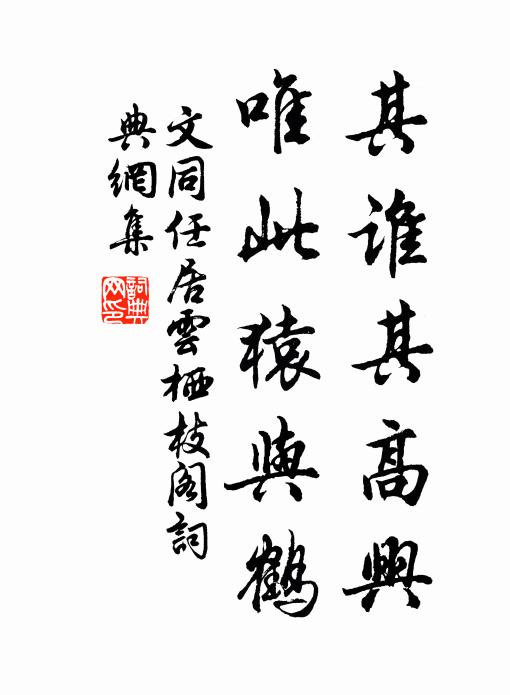 其誰其高興
唯此猿與鶴
文同任居雲栖枝阁詞
典網集
詞典网印